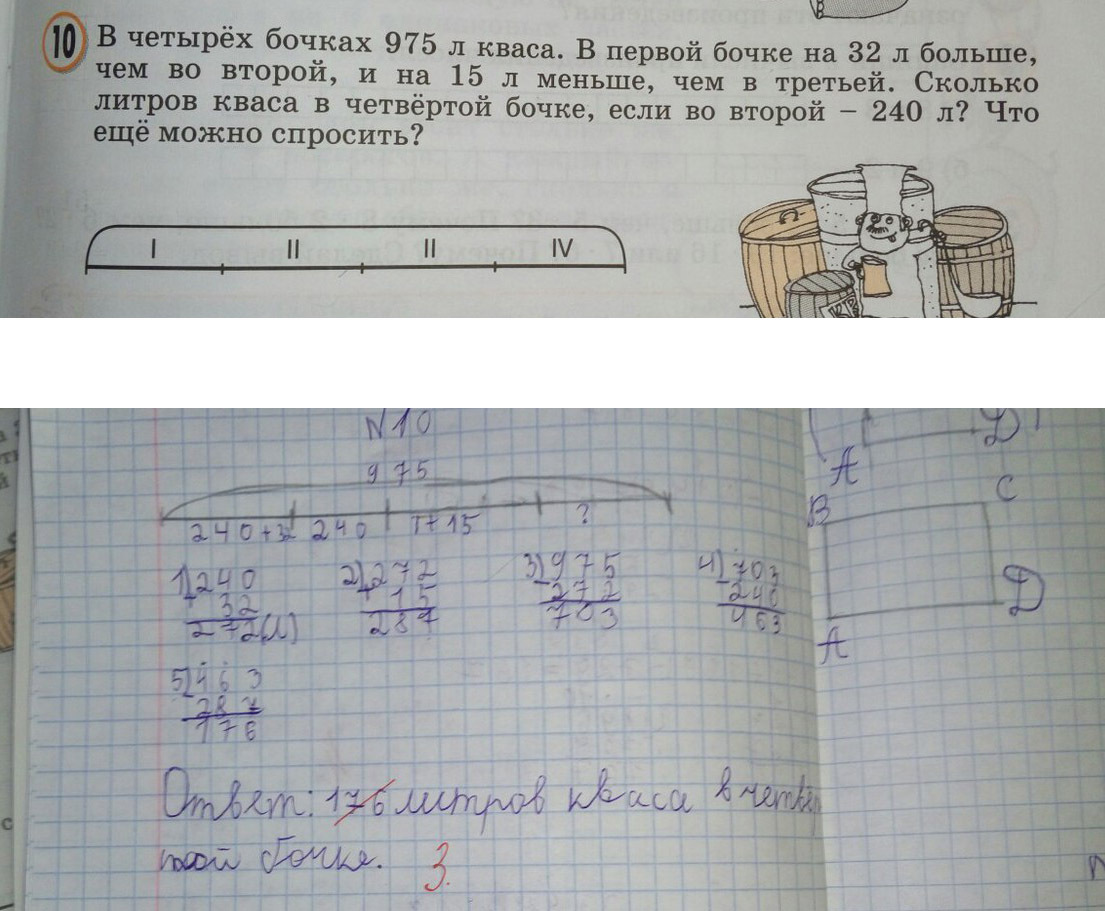 10 В четырёх бочках 975 л кваса. В первой бочке на 32 л больше,
чем во второй, и на 15 л меньше, чем в третьей. Сколько
литров кваса в четвёртой бочке, если во второй – 240 л? Что
ещё можно спросить?
I II II IV
N10
975
240+32 240 I+15 ?
1) 240 2) 272 3) 975 4) 703
+ 32 + 15 - 272 - 240
272(л) 287 703 463
5) 463
- 287
176
Ответ: 176 литров кваса в четвёр
той бочке. 3.
Д
А
В С
Д
А